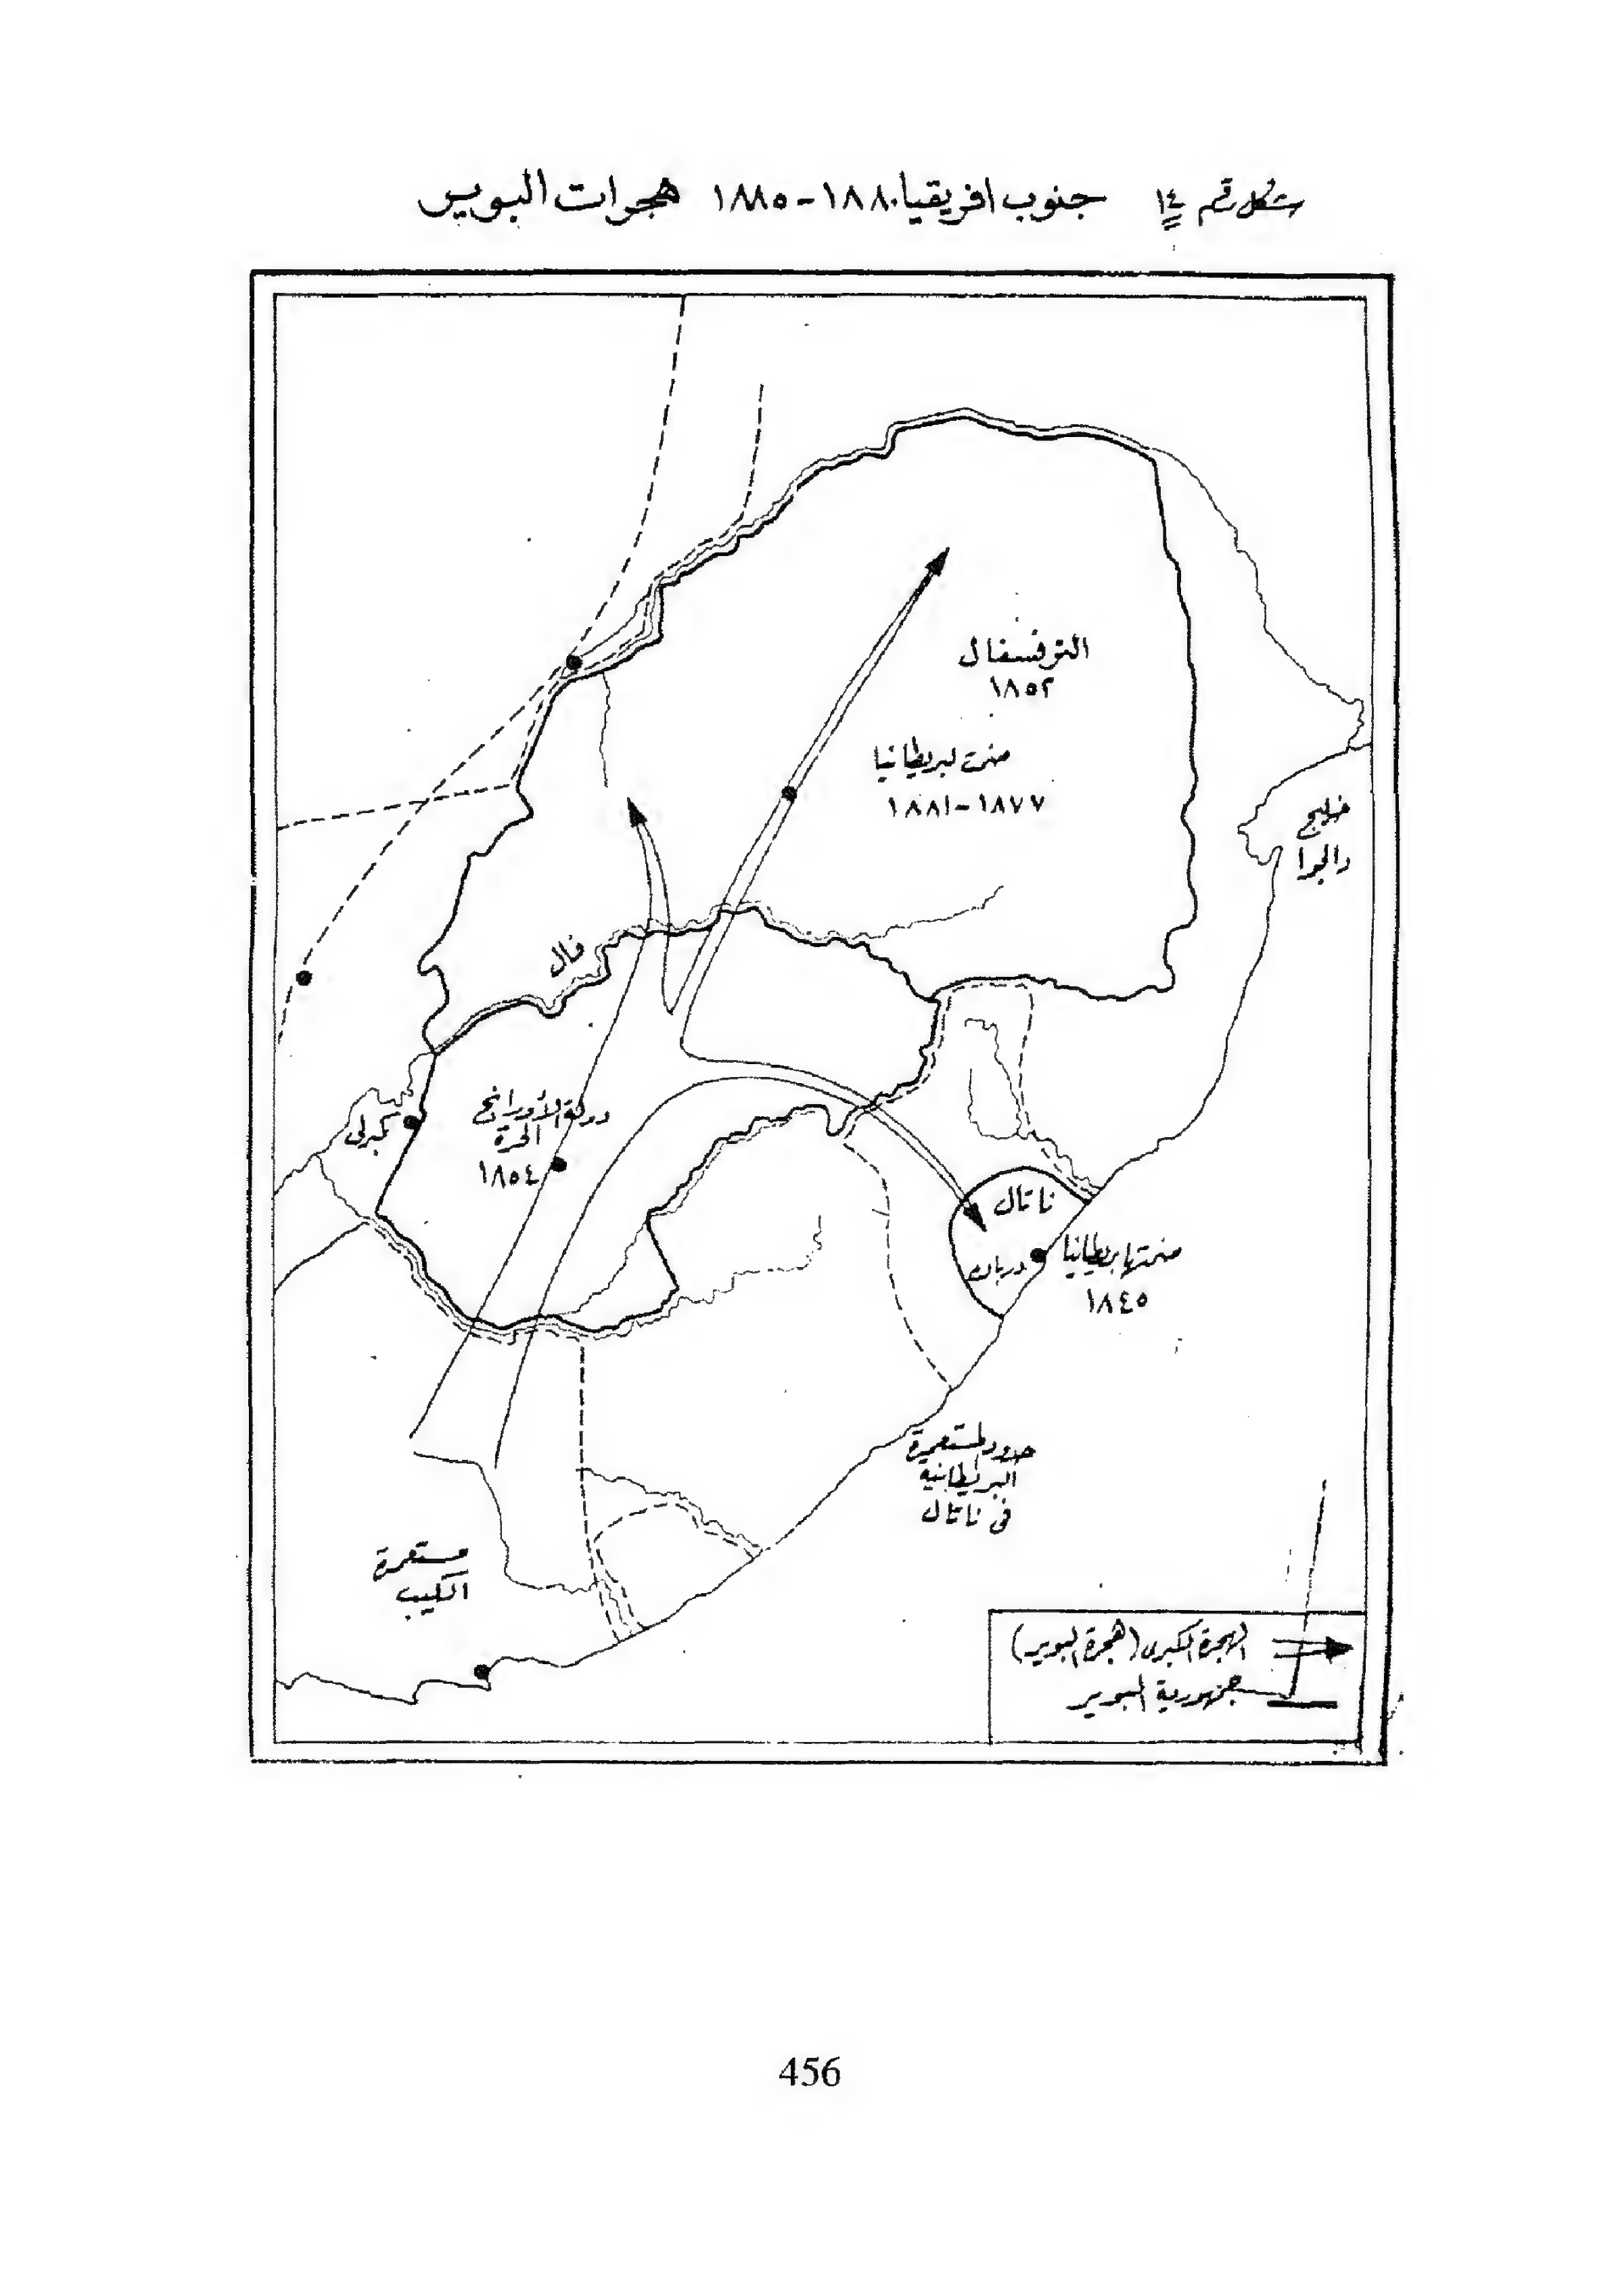 شكل رقم ١٤ جنوب افريقيا ١٨٨٠-١٨٨٥ هجرات البوير
الترنسفال
١٨٥٢
ضمت لبريطانيا
١٨٧٧-١٨٨١
خليج
دالجوا
فال
كمبرلى
دولة الأورانج
الحرة
١٨٥٤
ناتال
دربان
ضمتها بريطانيا
١٨٤٥
حدود المستعمرة
البريطانية
فى ناتال
مستعمرة
الكيب
الهجرة الكبرى (هجرة البوير)
جمهورية البوير
456